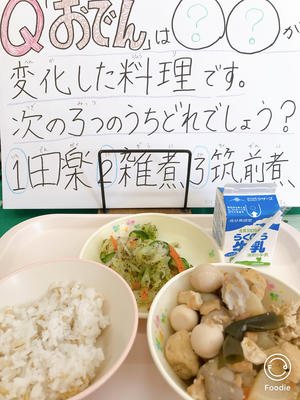 Q「おでん」は??が
変化した料理です。
次の3つのうちどれでしょう?
1田楽 2雑煮 3筑前煮
Foodie